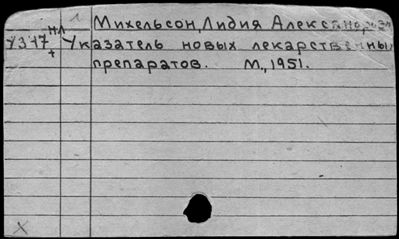 1 Михельсон, Лидия Александров
У347 нл + Указатель новых лекарственных
препаратов. М., 1951.
X